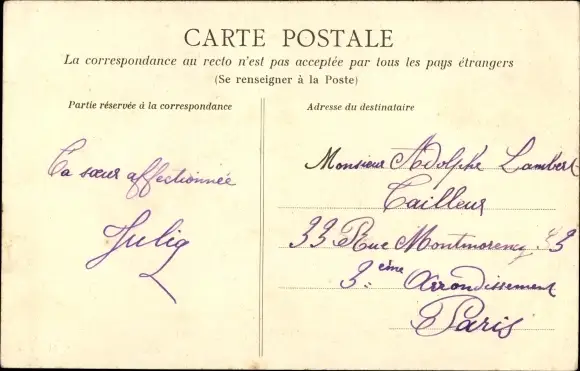 CARTE POSTALE
La correspondance au recto n'est pas acceptée par tous les pays étrangers
(Se renseigner à la Poste)
Partie réservée à la correspondance
Adresse du destinataire
Ta sœur affectionnée
Julia
Monsieur Adolphe Lambert
Tailleur
33 Rue Montmorency 33
3.ème Arrondissement
Paris